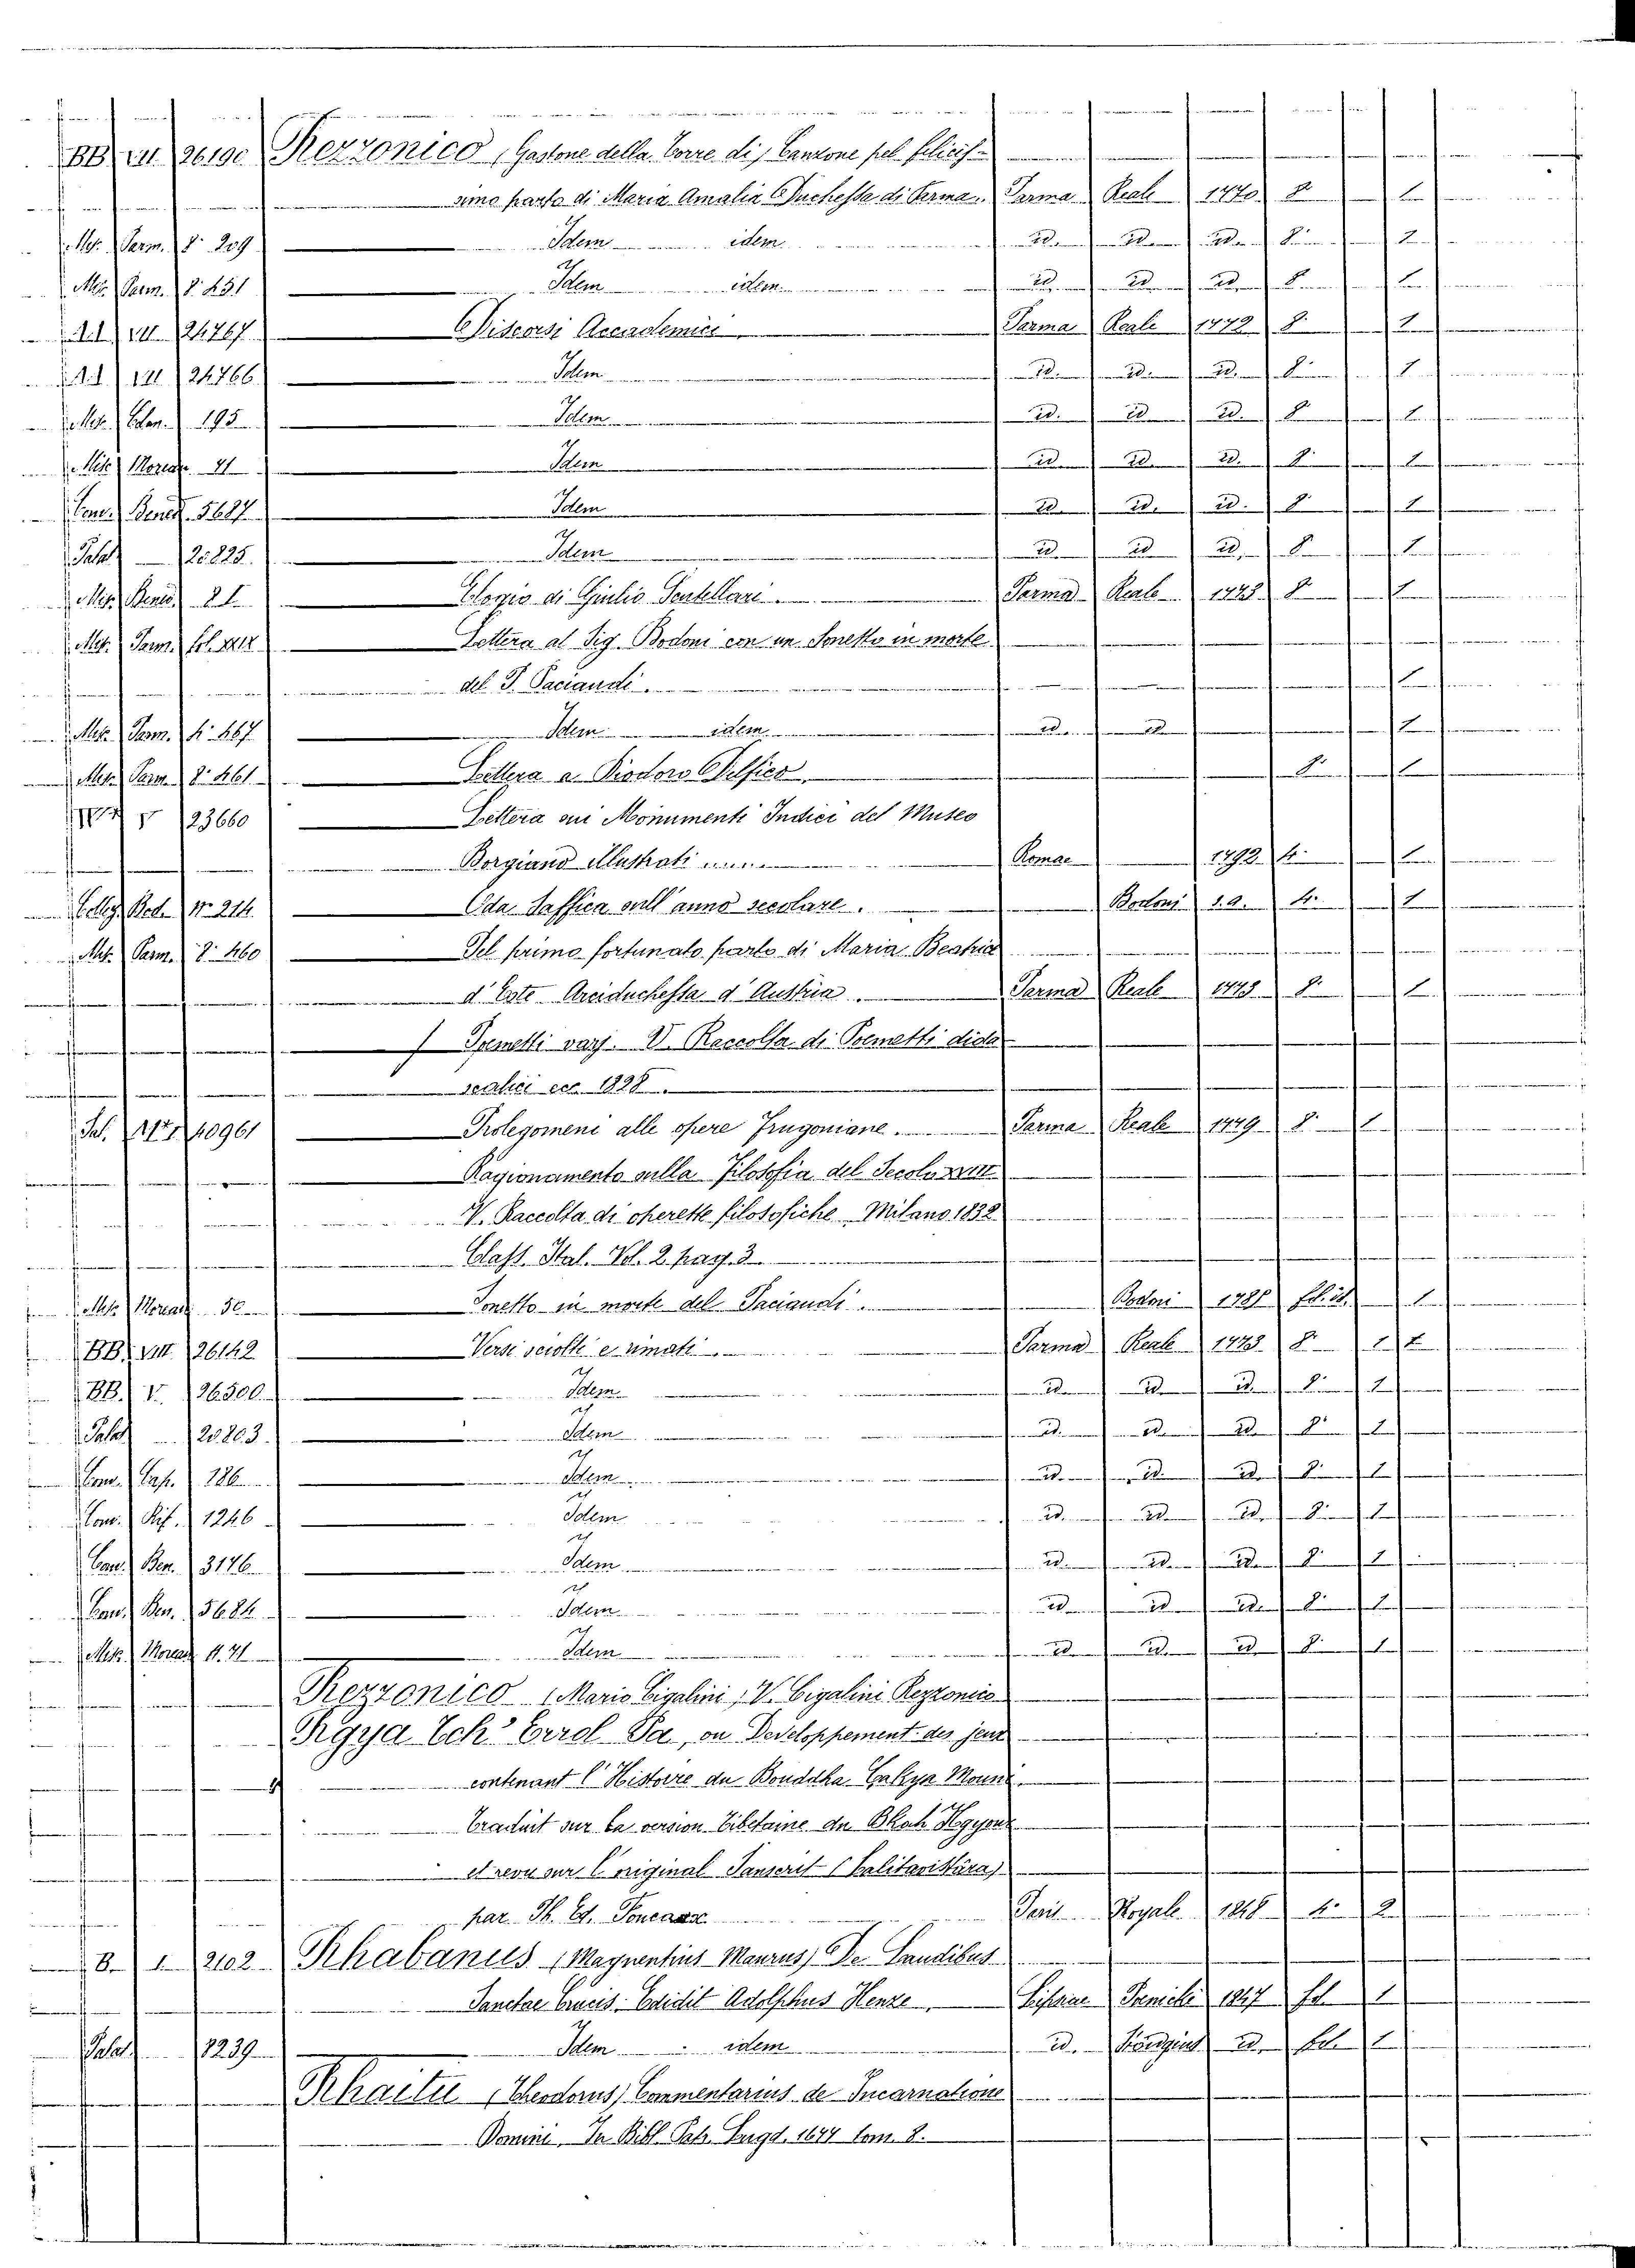 BB VIII 26190 Rezzonico (Gastone della Torre di) Canzone pel felicis-
simo parto di Maria Amalia Duchessa di Parma. Parma Reale 1770 8° 1
Misc. Parm. 8° 209 Idem idem id. id. id. 8° 1
Misc. Parm. 8° 431 Idem idem id. id. id. 8° 1
VIII 24767 Discorsi Accademici Parma Reale 1772 8° 1
VIII 24766 Idem id. id. id. 8° 1
Misc. 195 Idem id. id. id. 8° 1
Misc. Moreau 41 Idem id. id. id. 8° 1
Conv. Bened. 5687 Idem id. id. id. 8° 1
Palat. 20825 Idem id. id. id. 8° 1
Misc. Bened. Elogio di Giulio Sentellari Parma Reale 8° 1
Misc. Parm. fol. Lettera al Sig. Bodoni con un Sonetto in morte
del P. Paciaudi 1
Misc. Parm. 4° 467 Idem idem id. id. 1
Misc. Parm. 8° 461 Lettera a Diodoro Delfico 8° 1
V 23660 Lettera sui Monumenti Indici del Museo
Borgiano illustrati Romae 1792 4° 1
Colleg. Bod. N° 214 Oda Saffica sull'anno secolare. Bodoni s.a. 4° 1
Misc. Parm. 8° 460 Pel primo fortunato parto di Maria Beatrice
d'Este Arciduchessa d'Austria. Parma Reale 1773 8° 1
Poemetti varj. V. Raccolta di Poemetti dida
scalici ecc. 1828.
Pal. 10961 Prolegomeni alle opere Frugoniane. Parma Reale 1779 8° 1
Ragionamento sulla Filosofia del Secolo XVIII
V. Raccolta di operette filosofiche Milano 1832
Class. Ital. Vol. 2. pag. 3
Misc. Moreau 50 Sonetto in morte del Paciaudi. Bodoni 1785 1
BB VIII 26142 Versi sciolti e rimati Parma Reale 1773 8° 1
BB. V. 26500 Idem id. id. id. 8° 1
Palat. 20803 Idem id. id. id. 8° 1
Conv. Cap. 186 Idem id. id. id. 8° 1
Conv. Rif. 1246 Idem id. id. id. 8° 1
Conv. Ben. 3176 Idem id. id. id. 8° 1
Conv. Ben. 5684 Idem id. id. id. 8° 1
Misc. Moreau 41 Idem id. id. id. 8° 1
Rezzonico (Mario Cigalini) V. Cigalini Rezzonico
Rgya Tch' Errol Pa, ou Developpement des jeux
contenant l'Histoire du Bouddha Çakya Mouni
traduit sur la version Tibetaine du Bkah Hgyour
et revu sur l'original Sanscrit (Lalitavistâra)
par Ph. Ed. Foucaux Paris Royale 1848 4° 2
B. 1 2102 Rhabanus (Magnentius Maurus) De Laudibus
Sanctae Crucis. Edidit Adolphus Henze Lipsiae 1847 fol. 1
Palat. 1239 Idem idem id. id. fol. 1
Rhaitu (Theodorus) Commentarius de Incarnatione
Domini. In Bibl. Patr. Lugd. 1677 tom. 8.